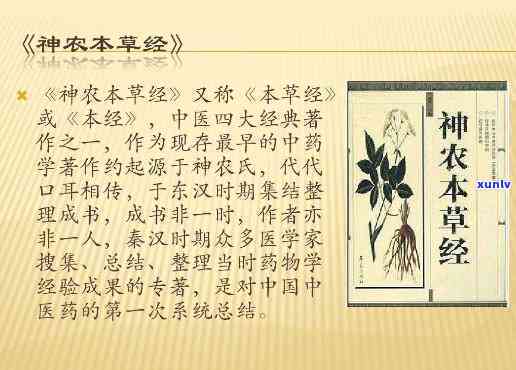 《神农本草经》
《神农本草经》又称《本草经》
或《本经》，中医四大经典著
作之一，作为现存最早的中药
学著作约起源于神农氏，代代
口耳相传，于东汉时期集结整
理成书，成书非一时，作者亦
非一人，秦汉时期众多医学家
搜集、总结、整理当时药物学
经验成果的专著，是对中国中
医药的第一次系统总结。
神农本草经
xunlv